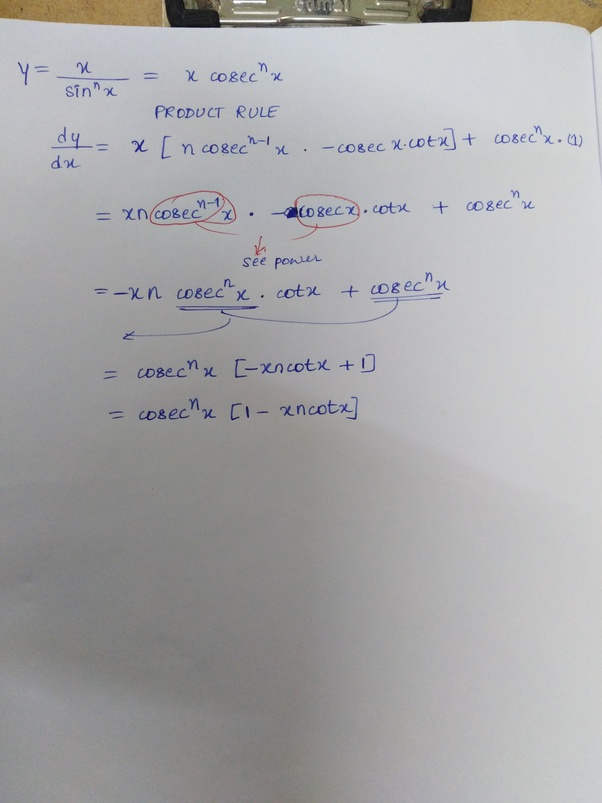 y = x/sinⁿx = x cosecⁿx
PRODUCT RULE
dy/dx = x [n cosecⁿ⁻¹x · -cosec x·cotx] + cosecⁿx·(1)
= xn cosecⁿ⁻¹x · -cosecx · cotx + cosecⁿx
see power
= -xn cosecⁿx · cotx + cosecⁿx
= cosecⁿx [-xncotx + 1]
= cosecⁿx [1 - xncotx]